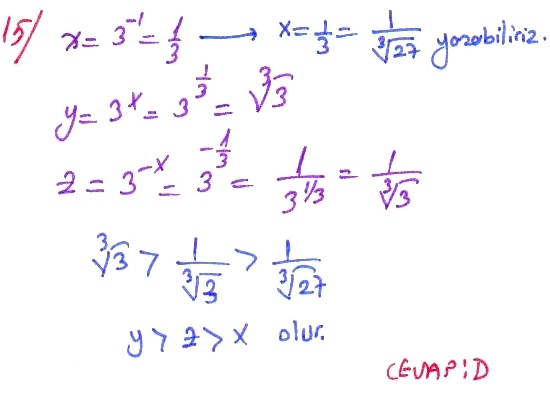 15/ x = 3^-1 = 1/3 → x = 1/3 = 1/∛27 yazabiliriz.
y = 3^x = 3^(1/3) = ∛3
z = 3^-x = 3^(-1/3) = 1/3^(1/3) = 1/∛3
∛3 > 1/∛3 > 1/∛27
y > z > x olur.
CEVAP: D